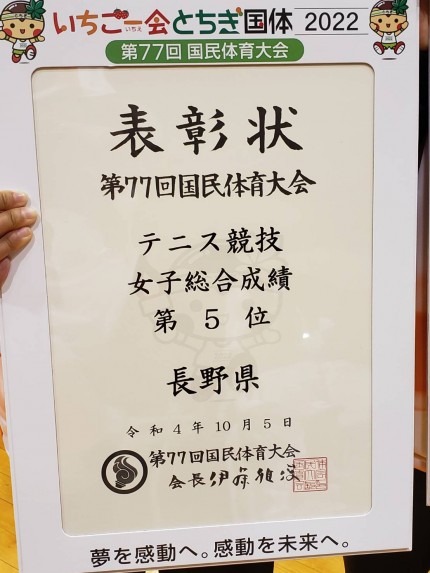 いちご一会とちぎ国体 2022
いちえ
第77回 国民体育大会
表彰状
第77回国民体育大会
テニス競技
女子総合成績
第 5 位
長野県
令和4年10月5日
第77回国民体育大会
会長 伊藤雅俊
夢を感動へ。感動を未来へ。